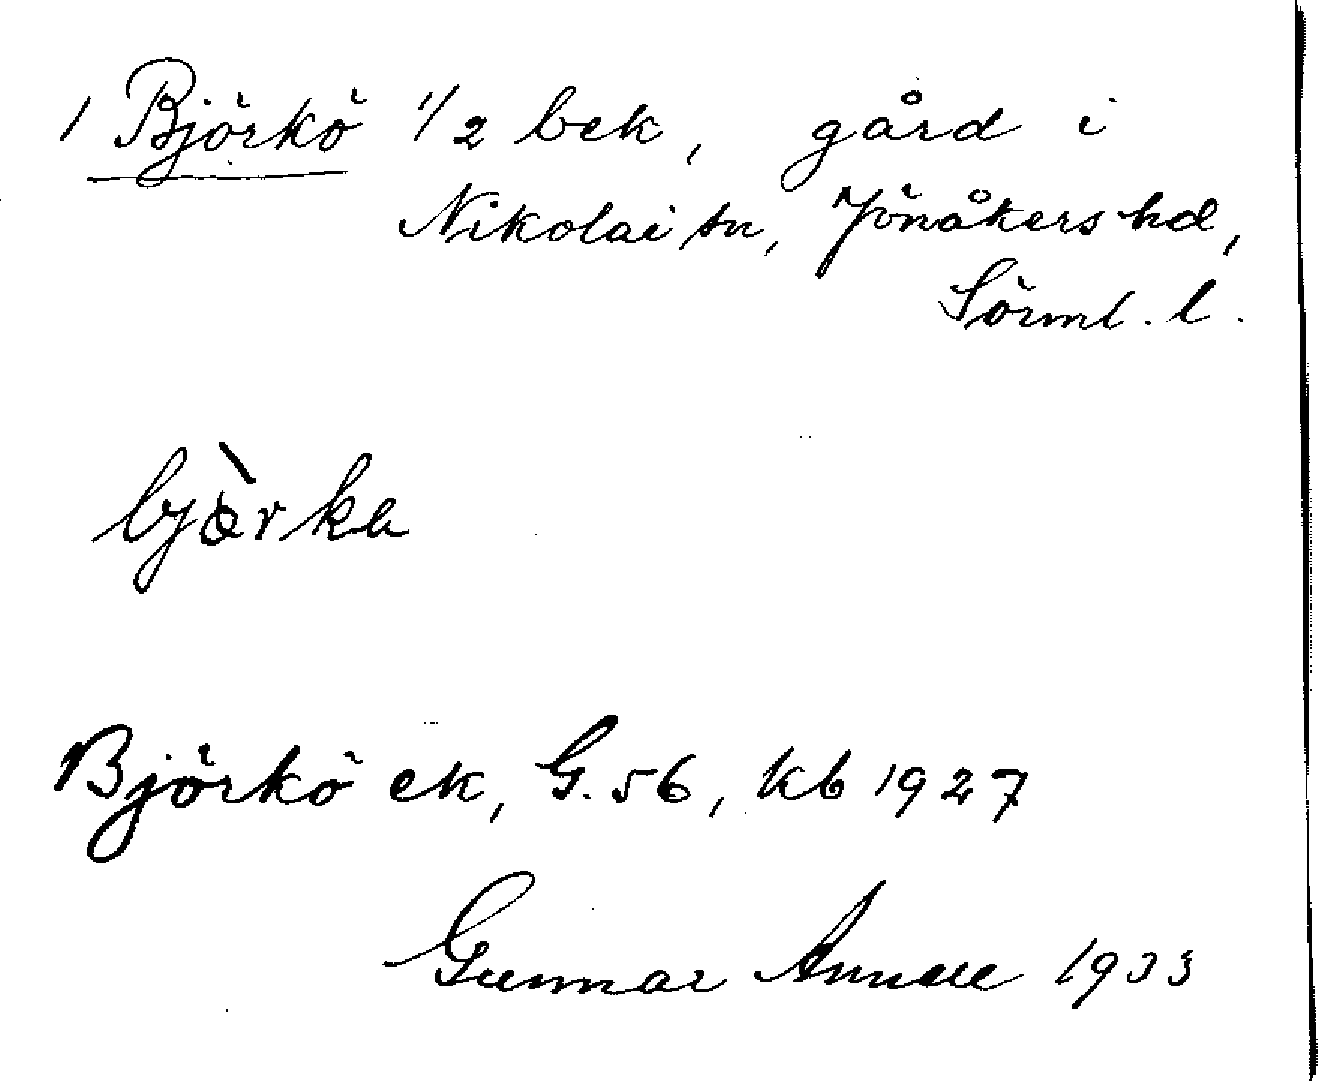 1 Björkö 1/2 bek, gård i
Nikolai sn, Jönåkers hd,
Sörml. l.
bjòrka
Björkö ek, G. 56, kb 1927
Gunnar 1933